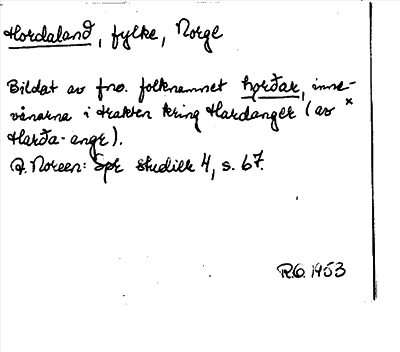 Hordaland, fylke, Norge
Bildat av fno. folknamnet hǫrðar, inne-
vånarna i trakten kring Hardanger (av ˣ
Harða-angr).
A. Noreen: Spr studier 4, s. 67.
R.O. 1953